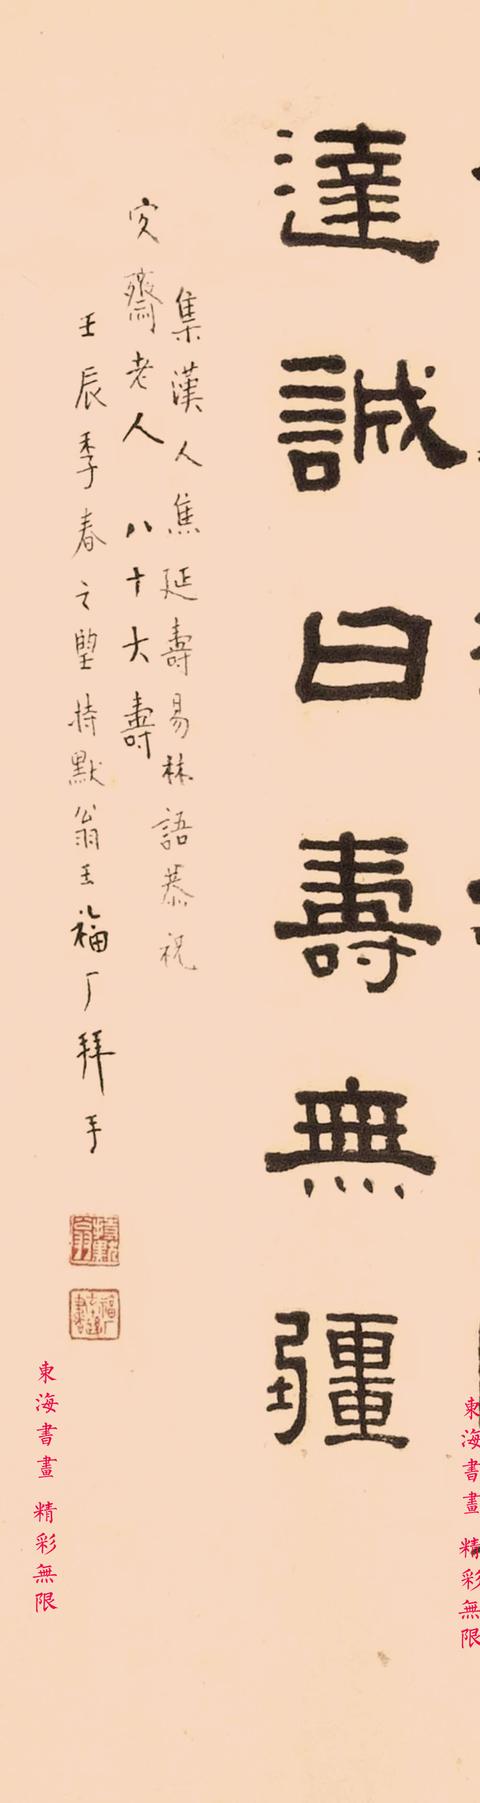 達誠曰壽無疆
集漢人焦延壽易林語恭祝
齋老人八十大壽
壬辰季春之朢持默翁王福厂拜手
持默翁
東海書畫 精彩無限
東海書畫 精彩無限